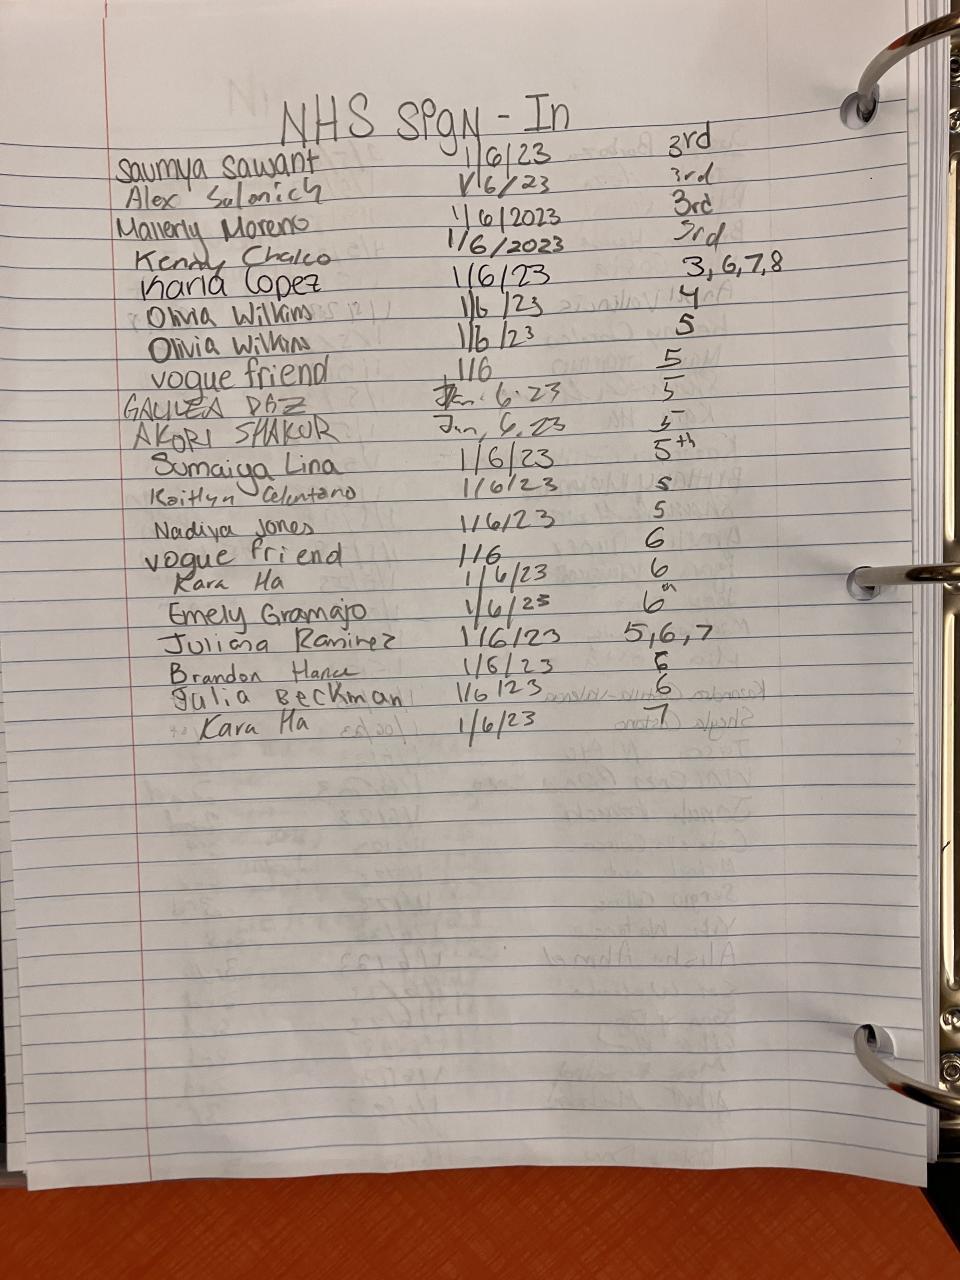 NHS SIgN - In
Saumya Sawant 1/6/23 3rd
Alex Salonich 1/6/23 3rd
Mallerly Moreno 1/6/2023 3rd
Kenny Chalco 1/6/2023 3rd
Karla Lopez 1/6/23 3,6,7,8
Olivia Wilkins 1/6/23 4
Olivia Wilkins 1/6/23 5
vogue friend 1/6 5
GALILEA DAZ Jan. 6. 23 5
AKORI SHAKUR Jan, 6, 23 5
Sumaiya Lina 1/6/23 5th
Kaitlyn Celentano 1/6/23 5
Nadiya Jones 1/6/23 5
vogue friend 1/6 6
Kara Ha 1/6/23 6
Emely Gramajo 1/6/23 6th
Juliana Ramirez 1/6/23 5,6,7
Brandon 1/6/23 6
Julia Beckman 1/6/23 6
Kara Ha 1/6/23 7